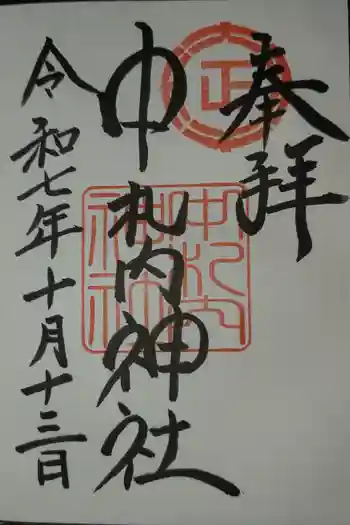 奉拝
中札内神社
令和七年十月十三日
中札内
神社